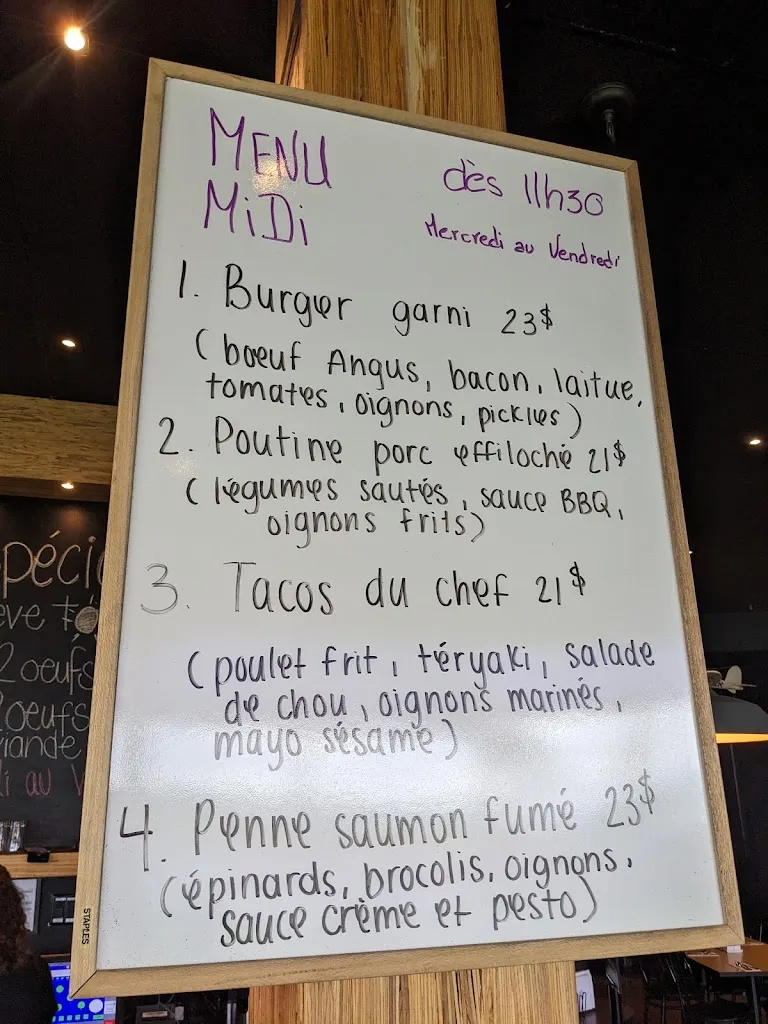 MENU
MiDi
dès 11h30
Mercredi au Vendredi
1. Burger garni 23$
(boeuf Angus, bacon, laitue,
tomates, oignons, pickles)
2. Poutine porc effiloché 21$
(légumes sautés, sauce BBQ,
oignons frits)
3. Tacos du chef 21$
(poulet frit, téryaki, salade
de chou, oignons marinés,
mayo sésame)
4. Penne saumon fumé 23$
(épinards, brocolis, oignons,
sauce crème et pesto)
STAPLES
péci
2 oeufs
oeufs
viande
au